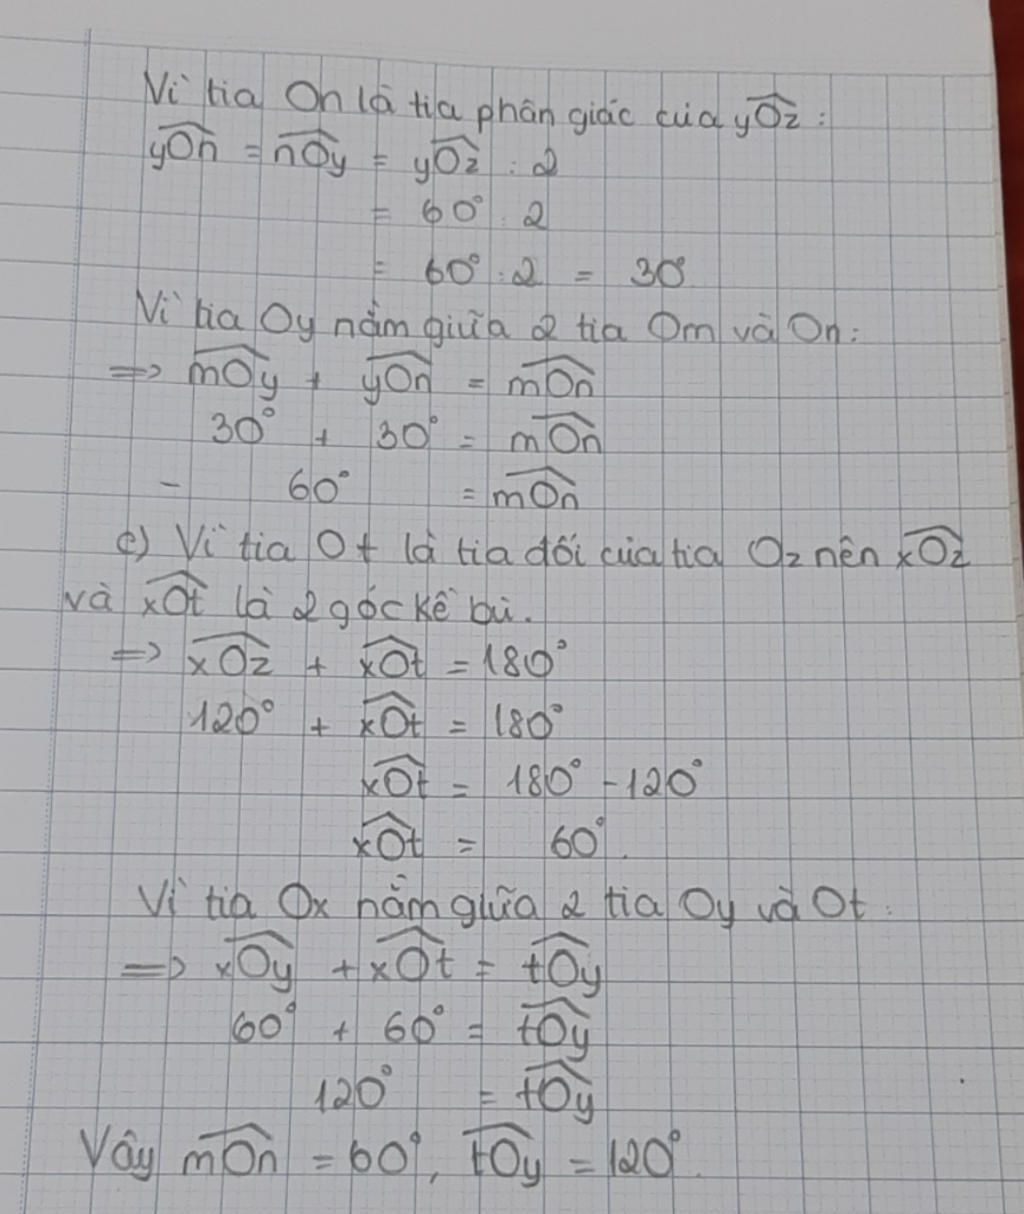 Vì tia On là tia phân giác của yOz :
yOn = nOy = yOz : 2
= 60° : 2
= 60° : 2 = 30°
Vì tia Oy nằm giữa 2 tia Om và On :
=> mOy + yOn = mOn
30° + 30° = mOn
- 60° = mOn
c) Vì tia Ot là tia đối của tia Oz nên xOz
và xOt là 2 góc kề bù.
=> xOz + xOt = 180°
120° + xOt = 180°
xOt = 180° - 120°
xOt = 60°.
Vì tia Ox nằm giữa 2 tia Oy và Ot :
=> xOy + xOt = tOy
60° + 60° = tOy
120° = tOy
Vây mOn = 60°, tOy = 120°.